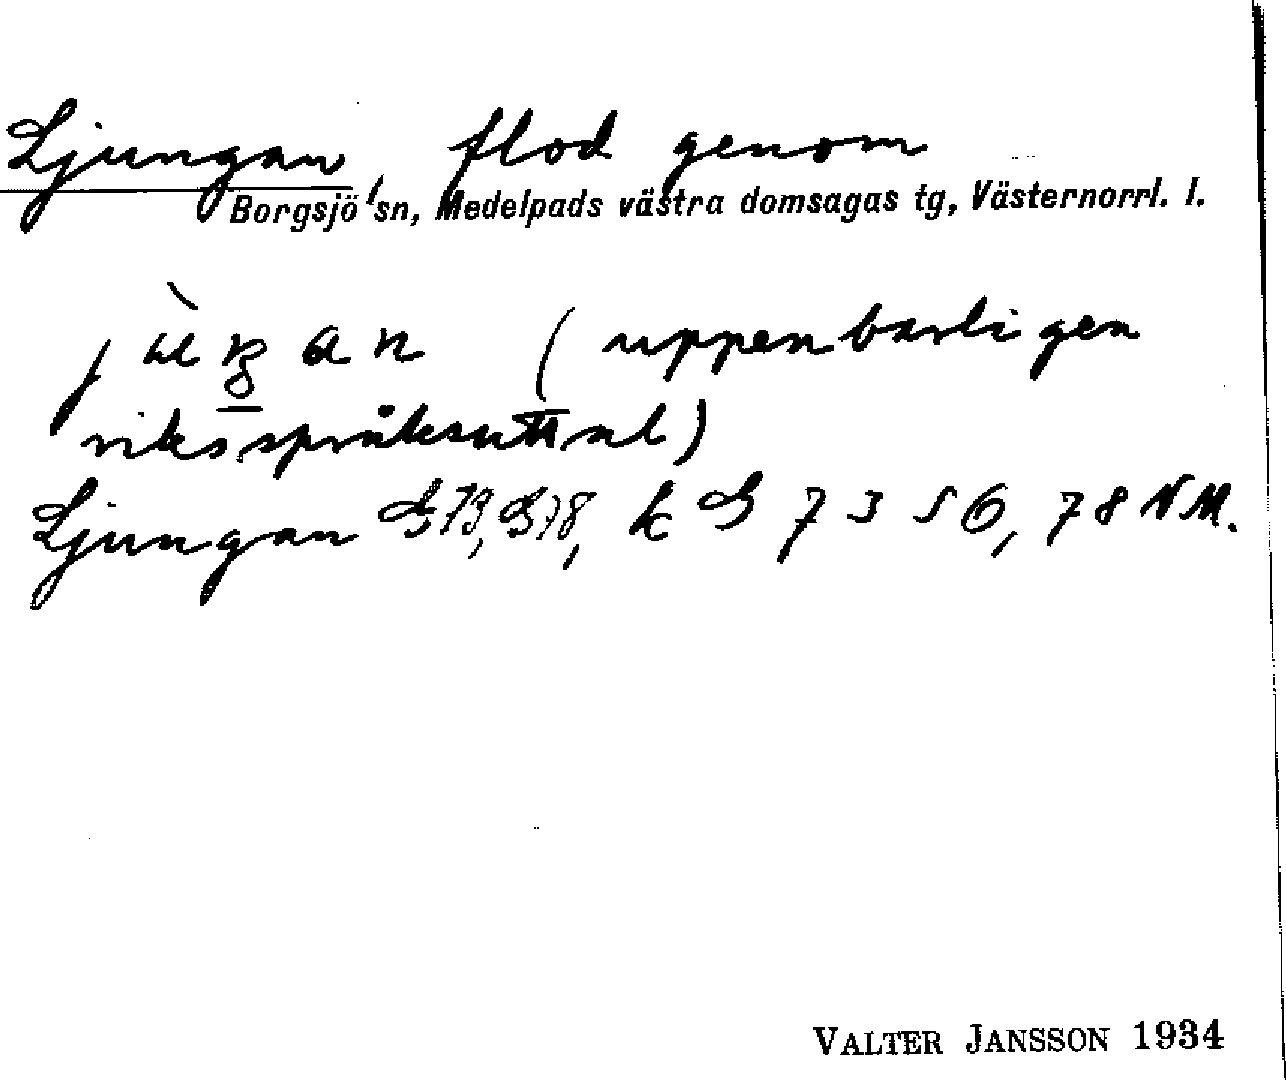 Ljungan, flod genom
Borgsjö sn, Medelpads västra domsagas tg, Västernorrl. l.
(uppenbarligen
riksspråksuttal)
Ljungan G73, G78, k G 7 3 5 6, 78 NM.
VALTER JANSSON 1934